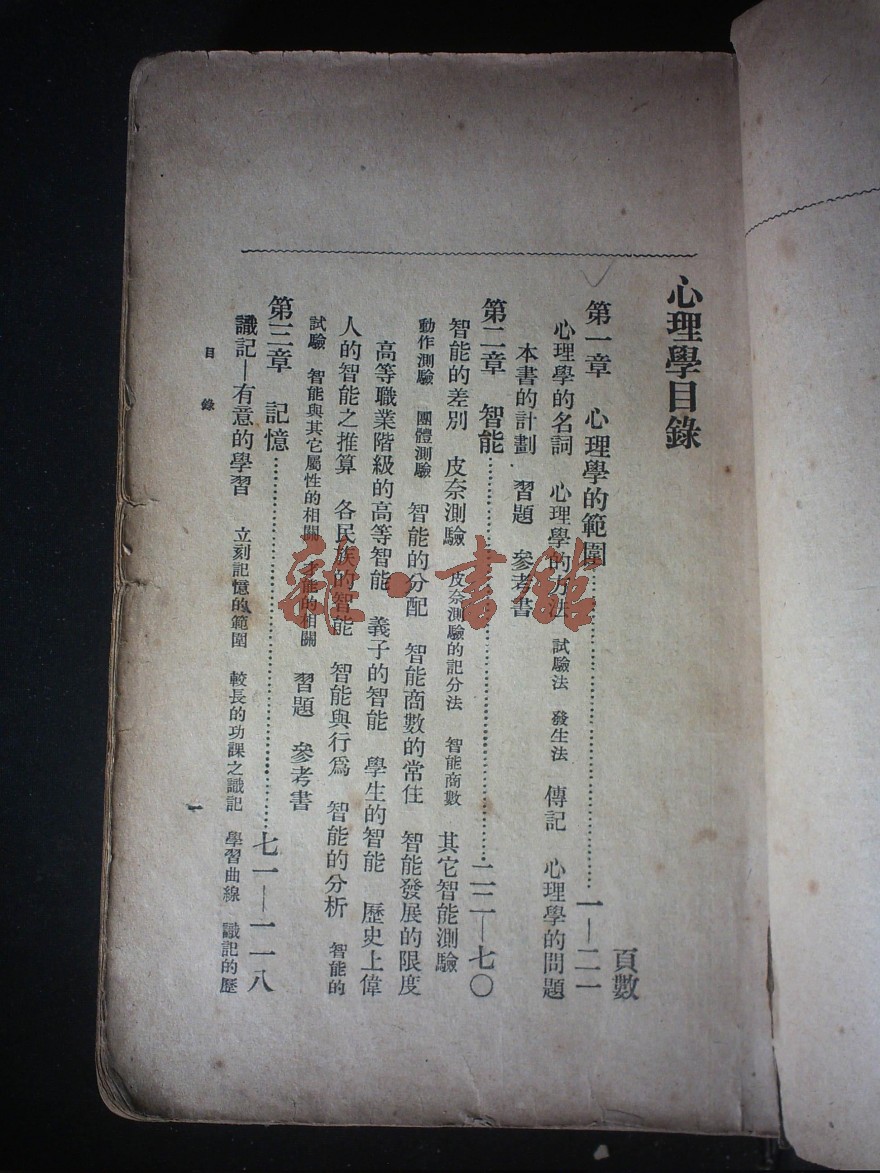 心理學目錄
頁數
第一章 心理學的範圍……一—二一
心理學的名詞 心理學的方法 試驗法 發生法 傳記 心理學的問題
本書的計劃 習題 參考書
第二章 智能……二二—七〇
智能的差別 皮奈測驗 皮奈測驗的記分法 智能商數 其它智能測驗
動作測驗 團體測驗 智能的分配 智能商數的常住 智能發展的限度
高等職業階級的高等智能 義子的智能 學生的智能 歷史上偉
人的智能之推算 各民族的智能 智能與行爲 智能的分析 智能的
試驗 智能與其它屬性的相關 才能的相關 習題 參考書
第三章 記憶……七一—一一八
識記—有意的學習 立刻記憶的範圍 較長的功課之識記 學習曲線 識記的歷
目錄
一
雜·書館